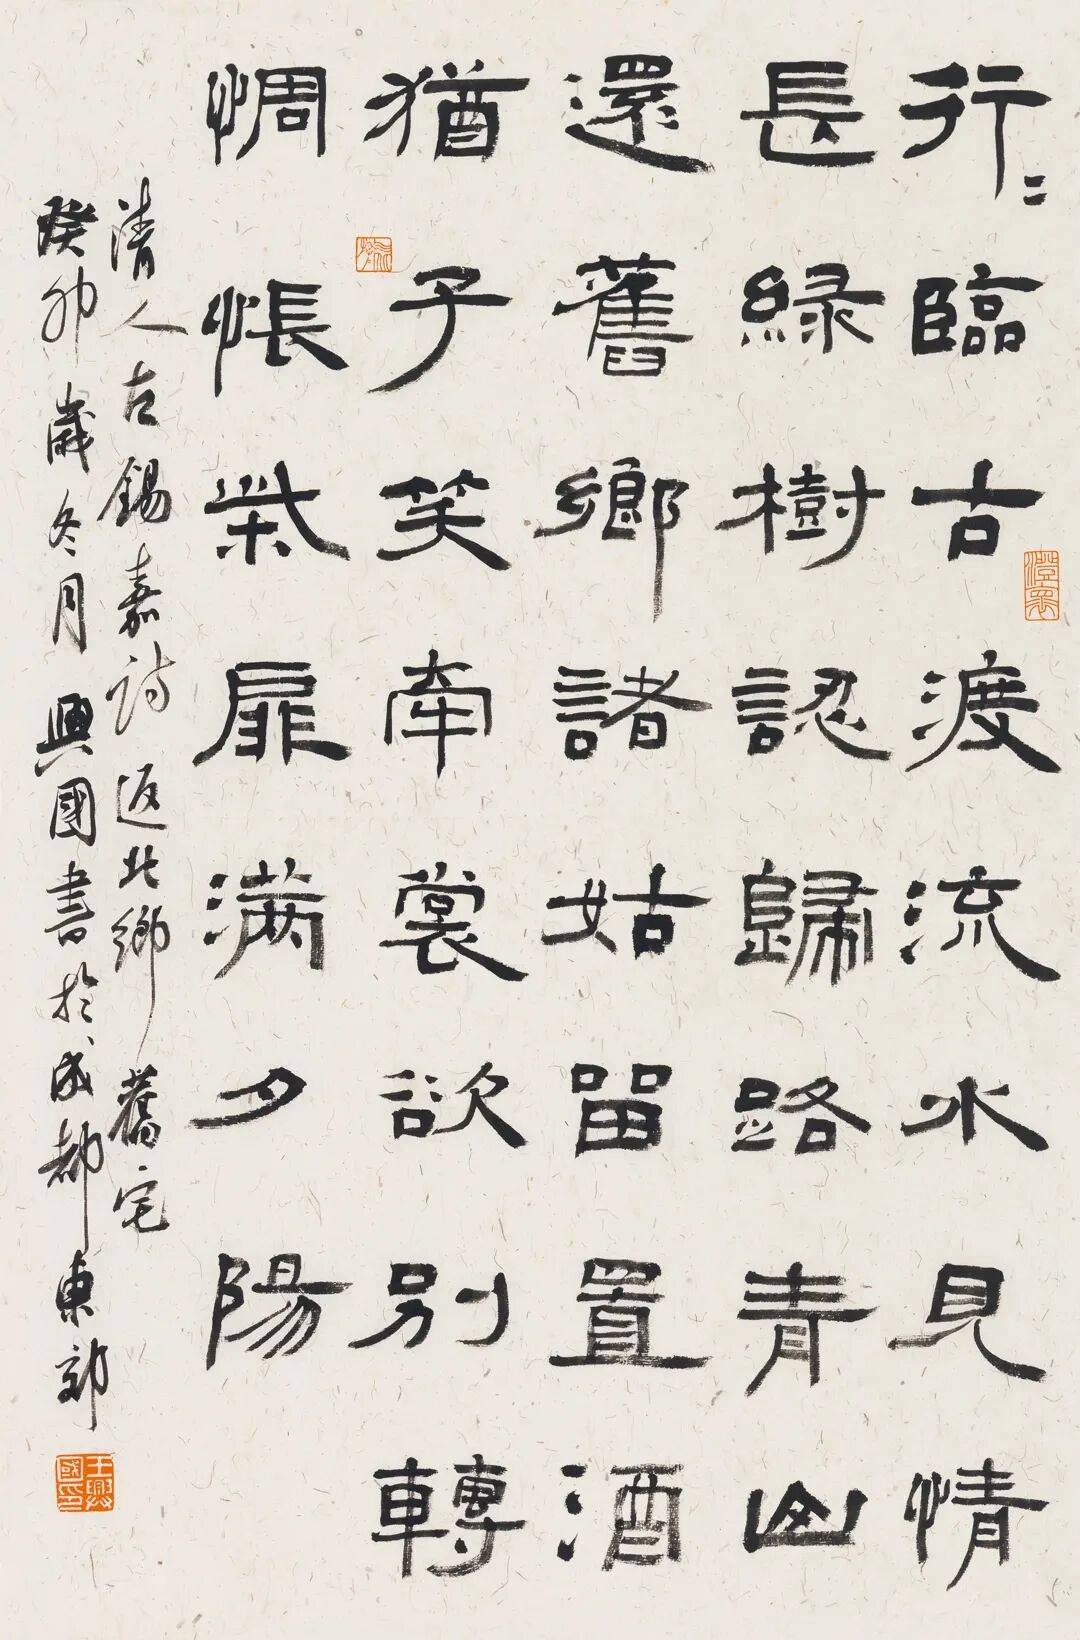 行〻臨古渡流水見情
長綠樹認歸路青山
還舊鄉諸姑留置酒
猶子笑牽裳欲別轉
惆悵柴扉满夕陽
清人左錫嘉詩返北鄉舊宅
癸卯歲冬月興國書於成都東郊
澄懷
王興國印